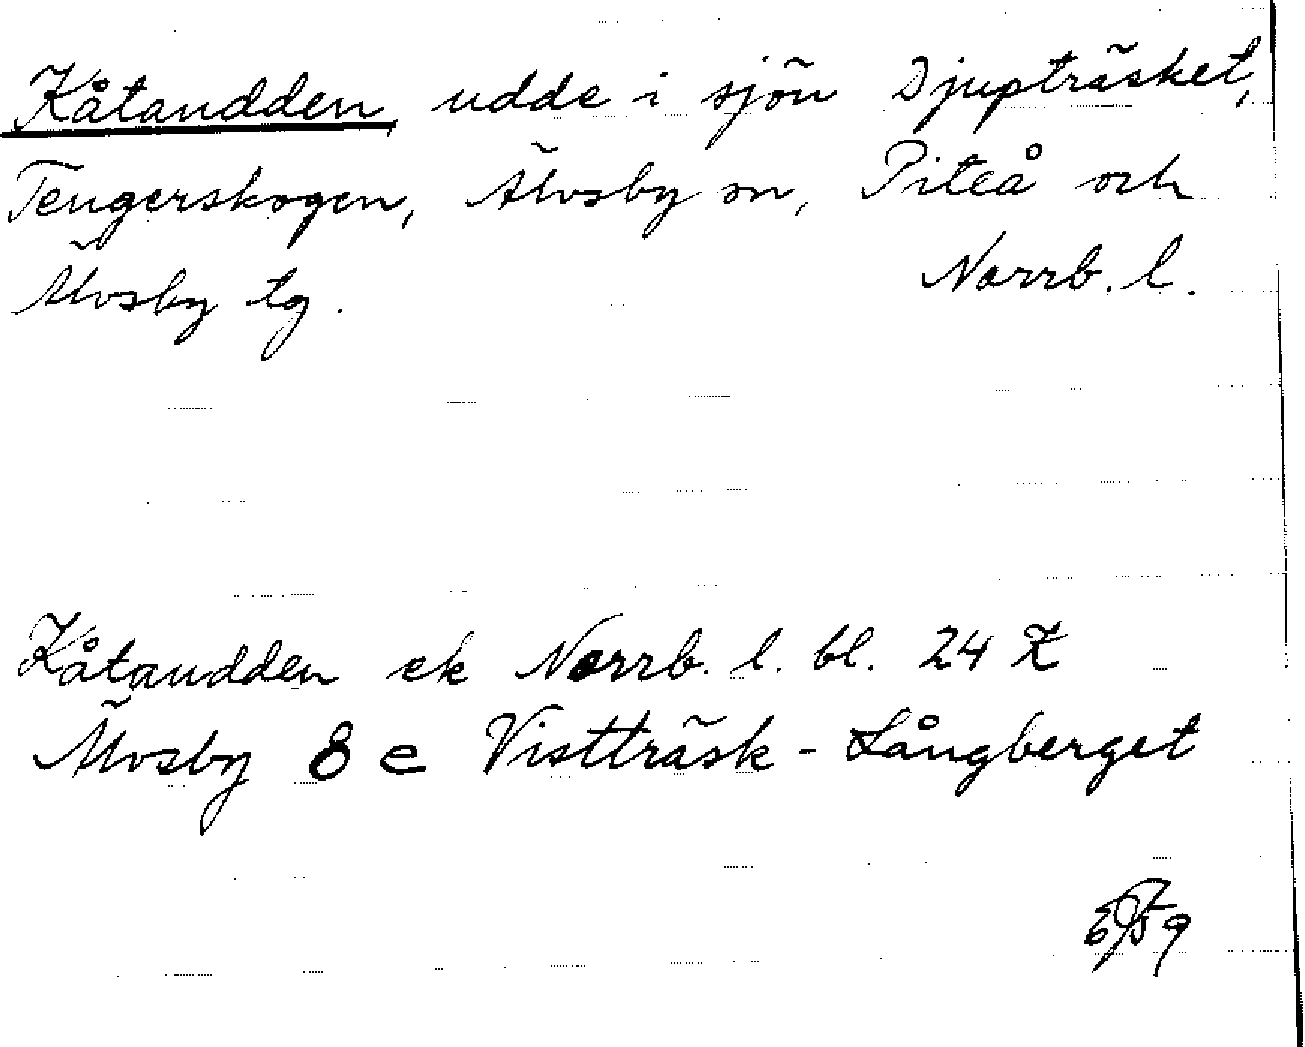 Kåtaudden, udde i sjön Djupträsket,
Teugerskogen, Älvsby sn, Piteå och
Älvsby tg. Norrb. l.
Kåtaudden ek Norrb. l. bl. 24 Z
Älvsby 8 e Vistträsk - Långberget